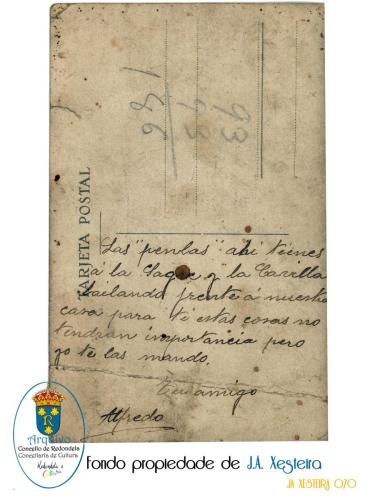 TARJETA POSTAL
Las "penlas" ahi tienes
á la Saque y "la Carolla
bailando frente á nuestra
casa para ti estas cosas no
tendran importancia pero
yo te las mando.
Tu amigo
Alfredo
Arquivo
Concello de Redondela
Concellería de Cultura
Redondela é
Fondo propiedade de J.A. Xesteira
JA XESTEIRA 070